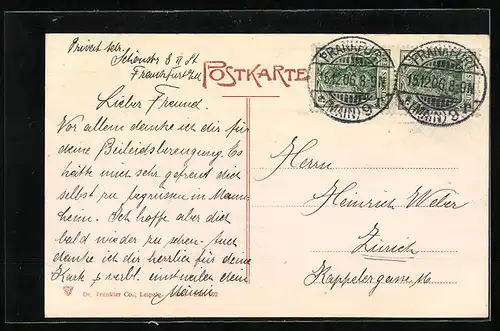 Privat adr.
Schönstr 8 II St
Frankfurt a/M
POSTKARTE
FRANKFURT
15.12.06. 8-9N.
(MAIN) 9
FRANKFURT
15.12.06. 8-9N.
(MAIN) 9
Lieber Freund.
Vor allem danke ich dir für
deine Beileidsbezeugung. Es
hätte mich sehr gefreut dich
selbst zu begrüssen in Mann
heim. Ich hoffe aber dich
bald wieder zu sehen. Auch
danke ich dir herzlich für deine
Karte & verbl. einstweilen dein
Herrn
Heinrich Weber
Zürich
Kappelergasse
Dr. Trenkler Co., Leipzig